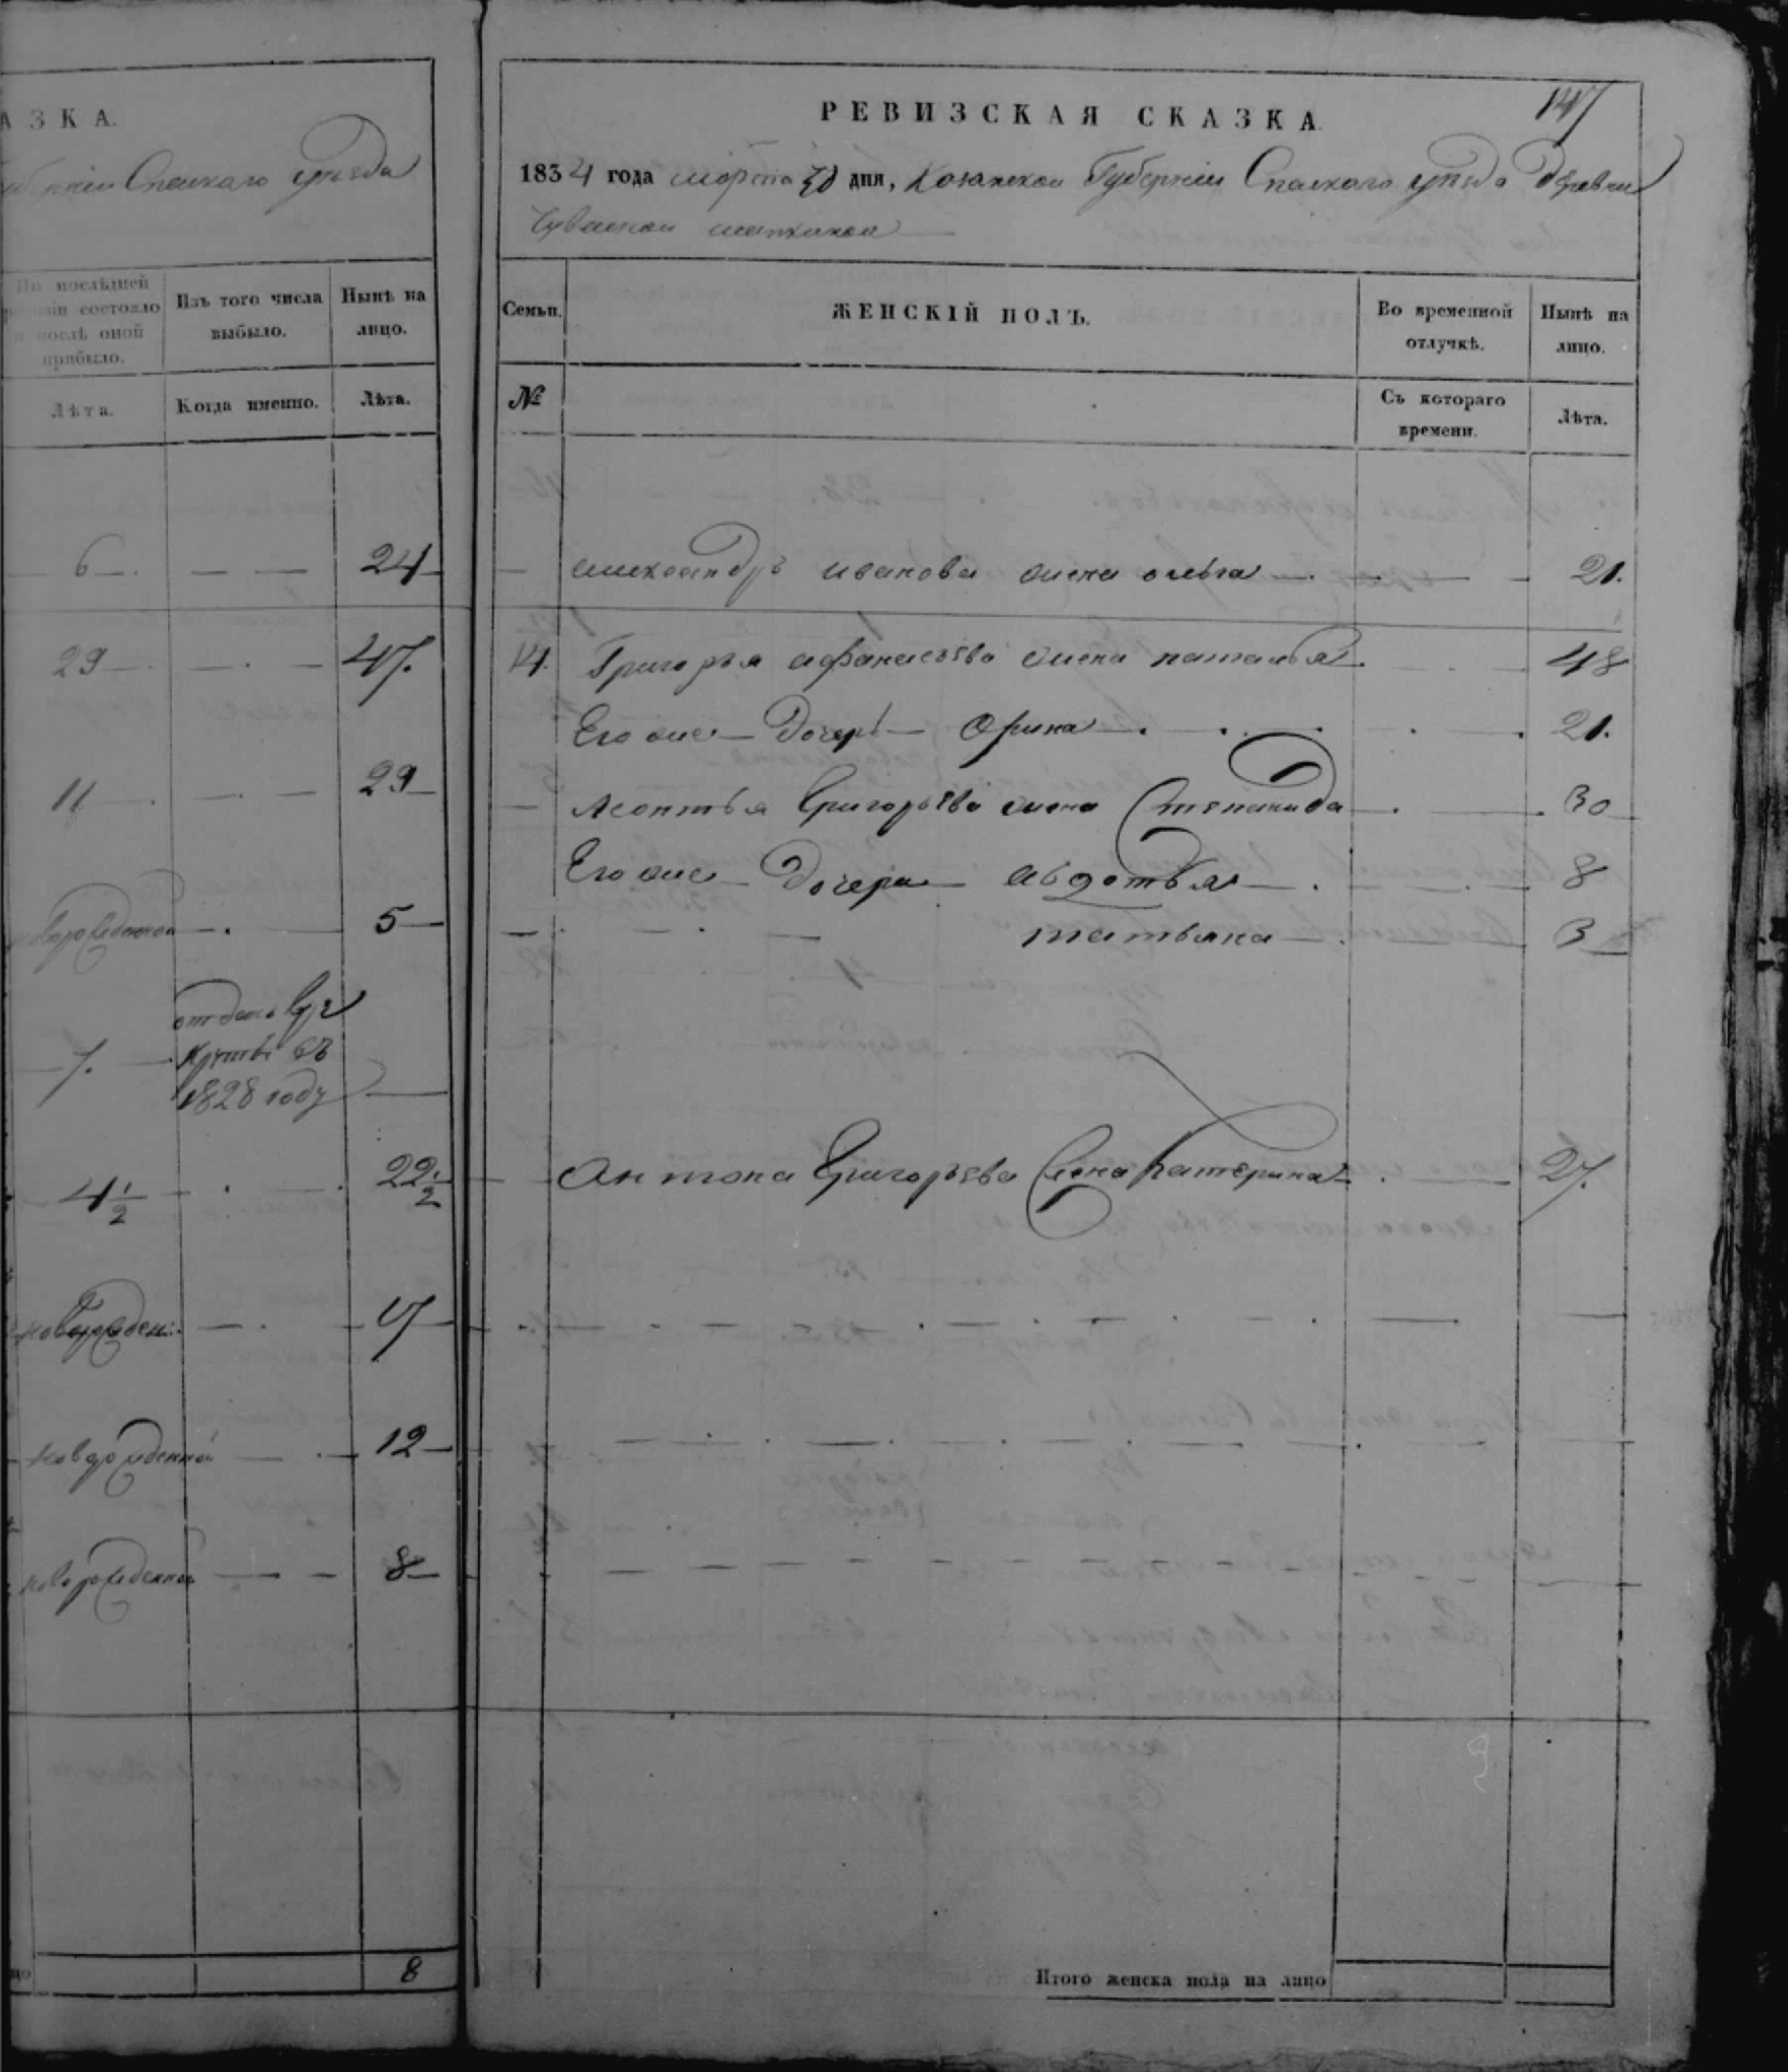 АЗКА.
Спаскаго уѣзда
По послѣдней ревизіи состояло и послѣ оной прибыло.
Изъ того числа выбыло.
Нынѣ на лицо.
Лѣта.
Когда именно.
Лѣта.
6 — — — 24
29 — — 47.
11 — — 29
новорожденной — 5
7. отданъ въ рекруты въ 1828 году —
4 1/2 — — 22 1/2
новорожден: — 17
новорожденной — 12
новорожденной — 8
8
147
РЕВИЗСКАЯ СКАЗКА.
1834 года марта 30 дня, Казанской Губерніи Спаскаго уѣзда Деревни
Чувашской
Семьи.
ЖЕНСКІЙ ПОЛЪ.
Во временной отлучкѣ.
Нынѣ на лицо.
№
Съ котораго времени.
Лѣта.
иванова жена ольга — 21.
14. Григорья афанасьева жена наталья — 48
Его же — Дочерь — Орина — 21.
— леонтья Григорьева жена Степанида — 30
Его же — Дочери — авдотья — 8
— татьяна — 3
— Антона Григорьева Жена Катерина — 27.
Итого женска пола на лицо